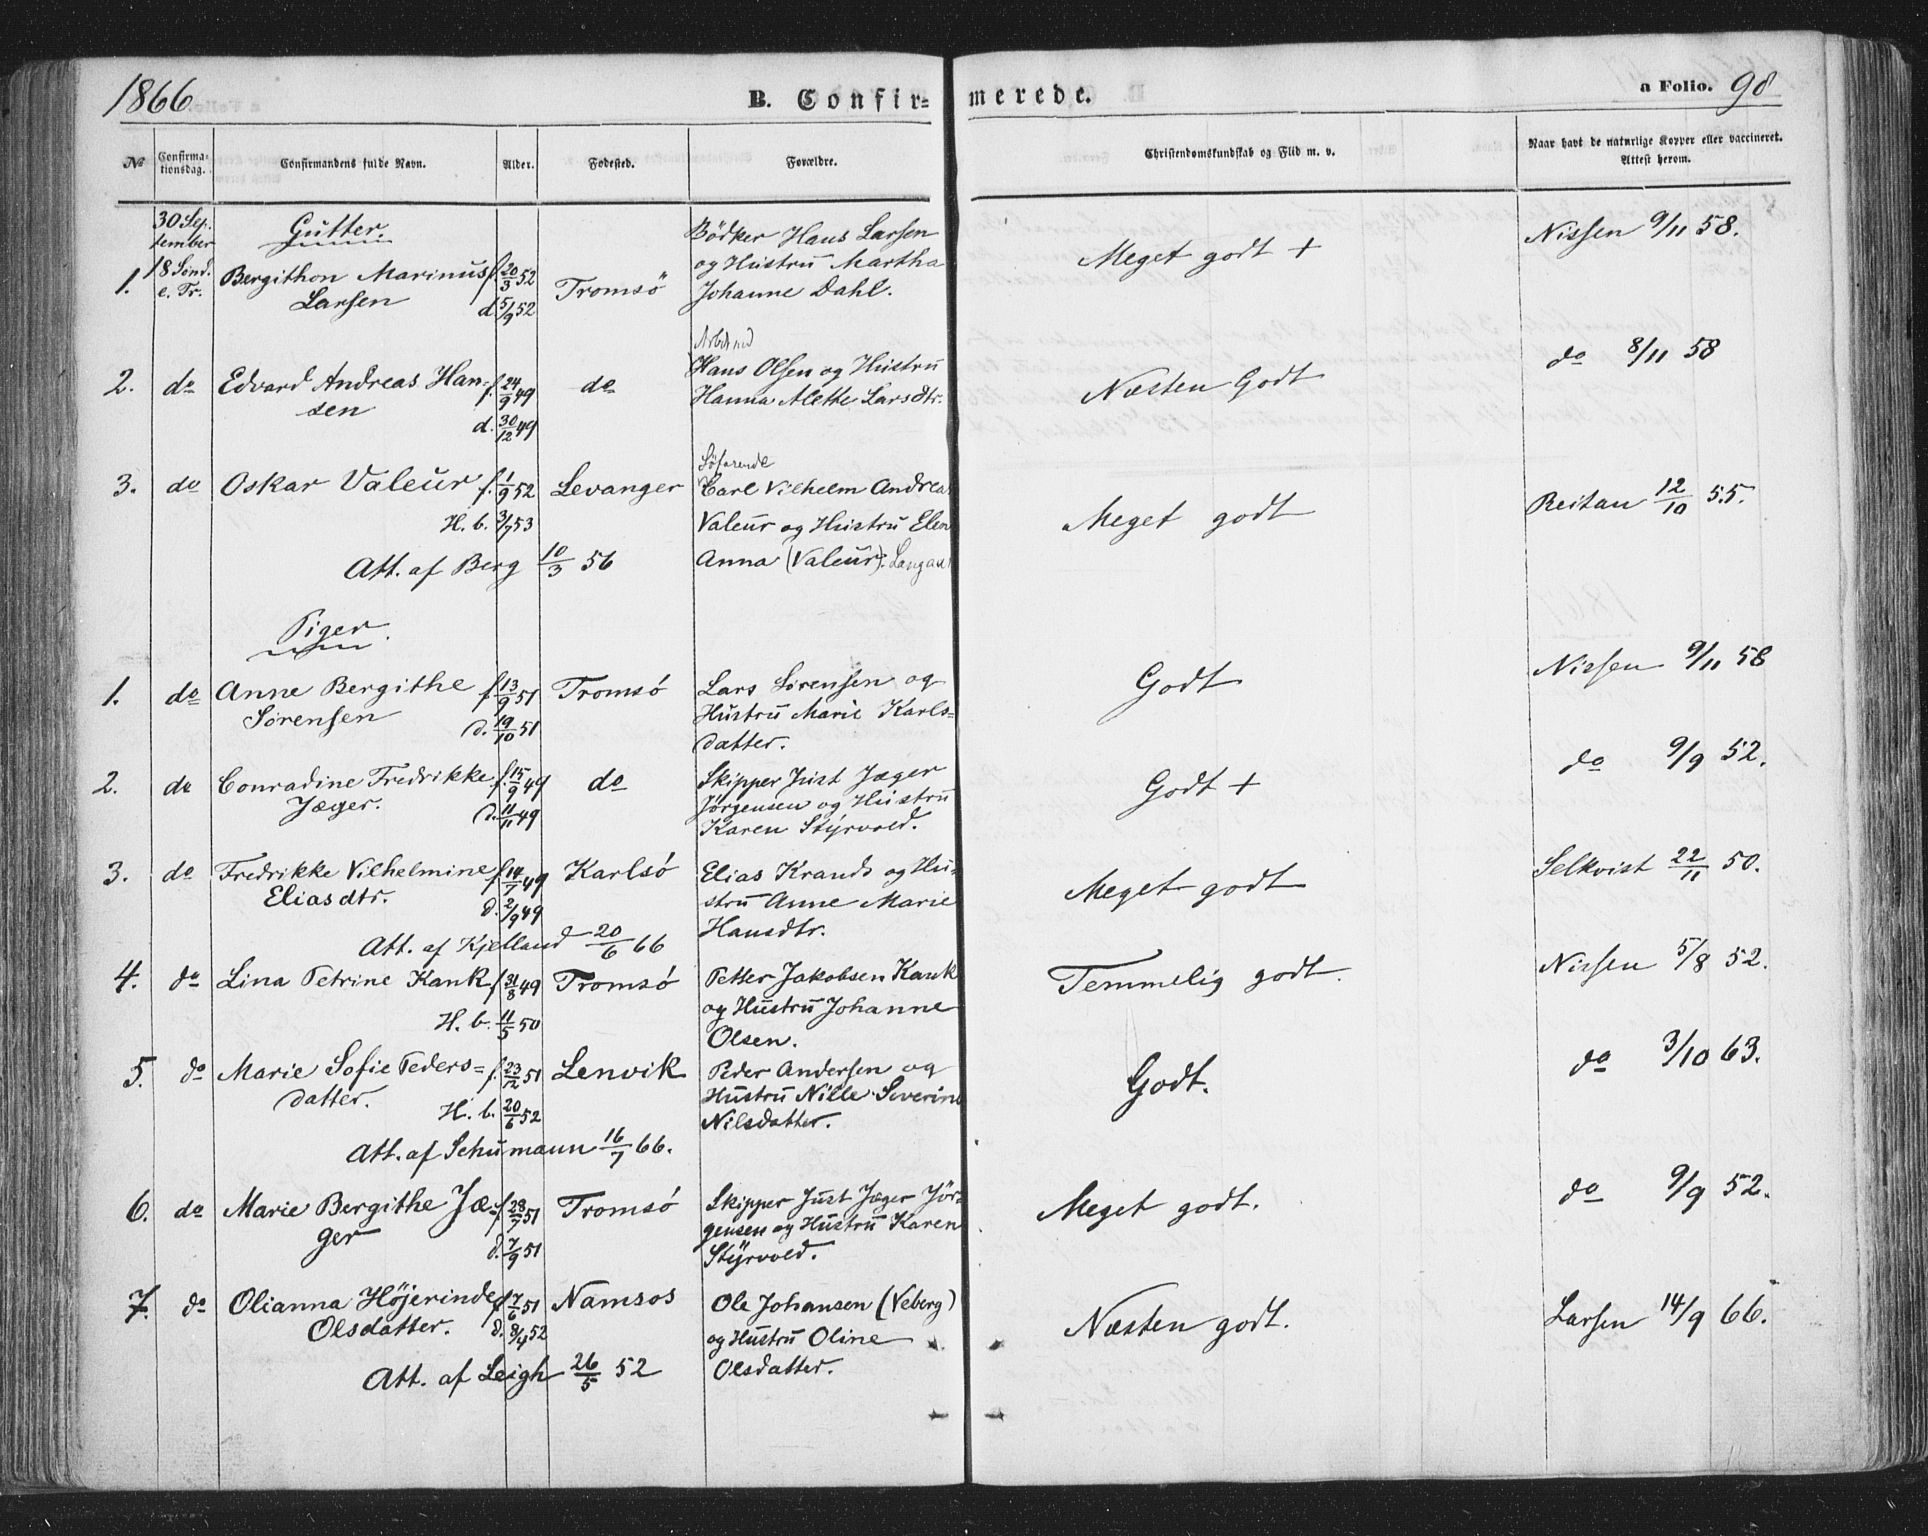 1866
B. Confir=merede.
a Folio. 98
No
Confirmationsdag.
Confirmandens fulde Navn.
Alder.
Fødested.
Forældre.
Christendomskundskab og Flid m. v.
Naar havt de naturlige Kopper eller vaccineret. Attest herom.
30 Sep.
tember
18 Sönd.
e. Tr.
Gutter.
1. Bergithon Marinus f. 20/3 52
Larsen d. 5/9 52
Tromsö
Bödker Hans Larsen
og Hustru Martha
Johanne Dahl.
Meget godt +
Nissen 9/11 58.
2. do Edvard Andreas Han- f. 24/9 49
sen d. 30/12 49
do
Hans Olsen og Hustru
Hanna Alethe Larsdtr.
Næsten Godt
do 8/11 58
3. do Oskar Valeur f. 1/9 52
H. b. 3/7 53
Att. af Berg 10/3 56
Levanger
Söfarende
Carl Vilhelm Andreas
Valeur og Hustru Elen
Anna (Valeur).
Meget godt
Reitan 12/10 55.
Piger.
1. do Anne Bergithe f. 13/9 51
Sörensen d. 19/10 51
Tromsö
Lars Sörensen og
Hustru Marie Karls=
datter.
Godt
Nissen 9/11 58
2. do Conradine Fredrikke f. 15/9 49
Jæger. d. 11/11 49
do
Skipper Just Jæger
Jörgensen og Hustru
Karen Styrvold.
Godt +
do 9/9 52.
3. do Fredrikke Vilhelmine f. 14/7 49
Eliasdtr. d. 2/9 49
Att. af Kjelland 20/6 66
Karlsö
Elias Krands og Hu-
stru Anne Marie
Hansdtr.
Meget godt
Selkvist 22/11 50.
4. do Lina Petrine Kank f. 31/8 49
H. b. 11/5 50
Tromsö
Petter Jakobsen Kank
og Hustru Johanne
Olsen.
Temmelig godt.
Nissen 5/8 52.
5. do Marie Sofie Peders= f. 23/12 51
datter. H. b. 20/6 52
Att. af Schumann 16/7 66.
Lenvik
Peder Andersen og
Hustru Nille Severine
Nilsdatter.
Godt.
do 3/10 63.
6. do Marie Bergithe Jæ- f. 28/7 51
ger d. 7/9 51
Tromsö
Skipper Just Jæger Jör=
gensen og Hustru Karen
Styrvold.
Meget godt.
do 9/9 52.
7. do Olianna Höjerinde f. 7/6 51
Olsdatter. d. 8/4 52
Att. af Leigh 26/5 52
Namsos
Ole Johansen (Veberg)
og Hustru Oline
Olsdatter.
Næsten godt.
Larsen 14/9 66.